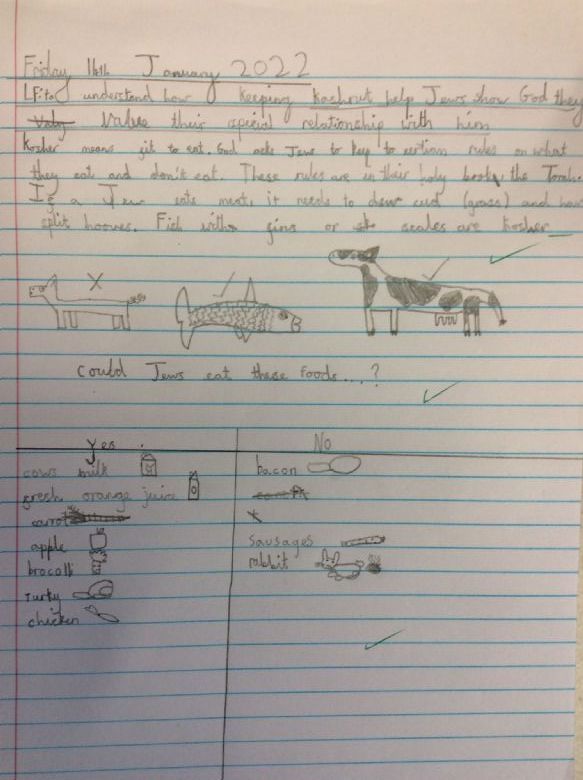 Friday 14th January 2022
LF: to understand how keeping kashrut help Jews show God they
value their special relationship with him
Kosher means fit to eat. God asks Jews to keep to certian rules on what
they eat and don't eat. These rules are in their holy book, the Torah.
If a Jew eats meat, it needs to chew cud (grass) and have
split hooves. Fish with fins or scales are kosher
Could Jews eat these foods...?
Yes No
cows milk bacon
fresh orange juice
carrot
apple sausages
brocolli rabbit
turky
chicken